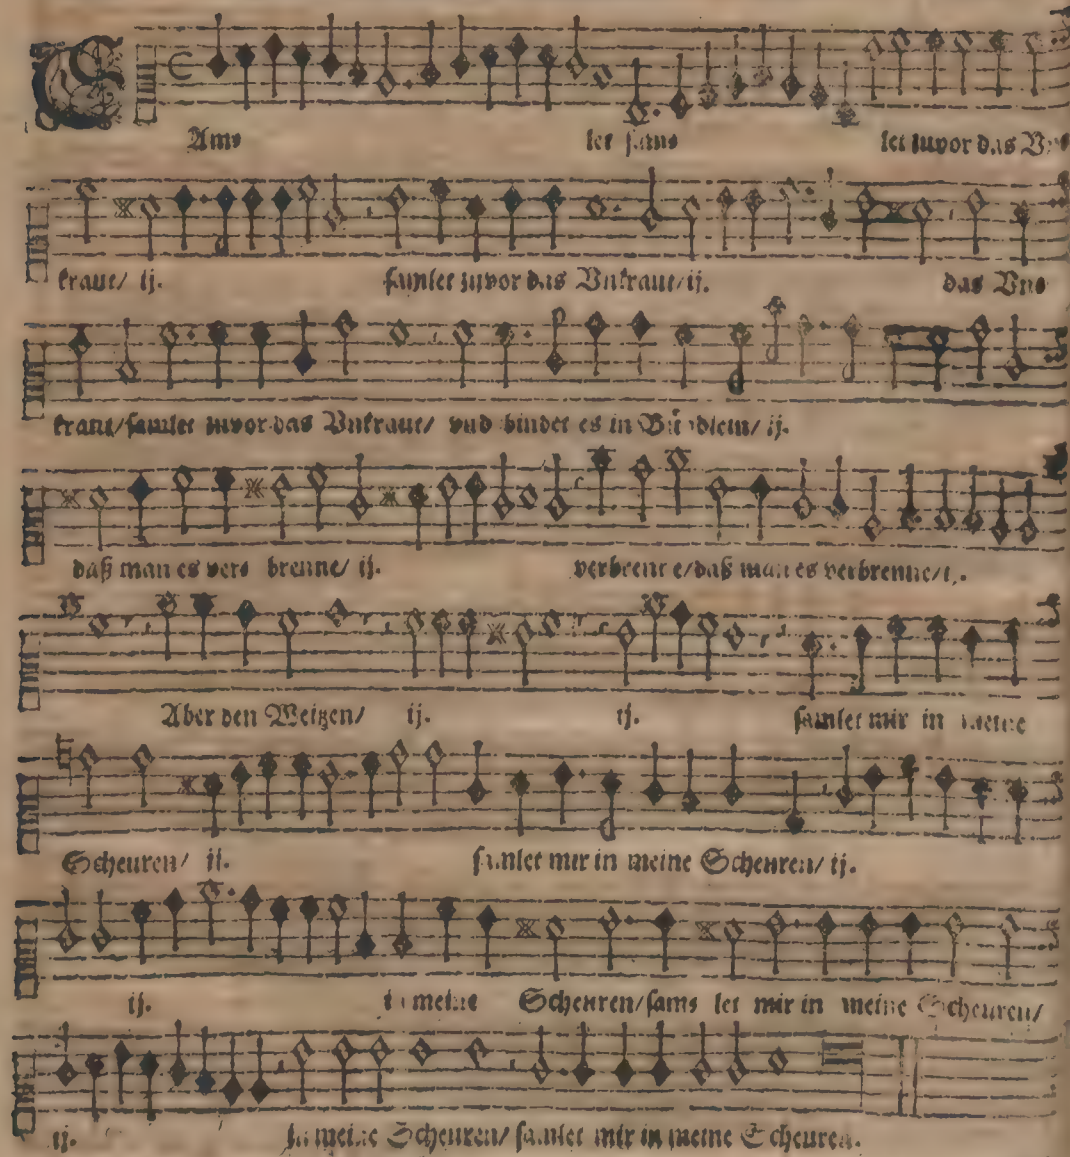 SAms let sams let zuvor das Vn⸗
kraut/ ij. samlet zuvor das Vnkraut/ ij. das Vn⸗
kraut/ samlet zuvor das Vnkraut/ vnd bindet es in Bündlein/ ij.
daß man es vers brenne/ ij. verbrenne/ daß man es verbrenne/ ij.
Aber den Weitzen/ ij. ij. samlet mir in meine
Scheuren/ ij. samlet mir in meine Scheuren/ ij.
ij. in meine Scheuren/ sams let mir in meine Scheuren/
ij. in meine Scheuren/ samlet mir in meine Scheuren.